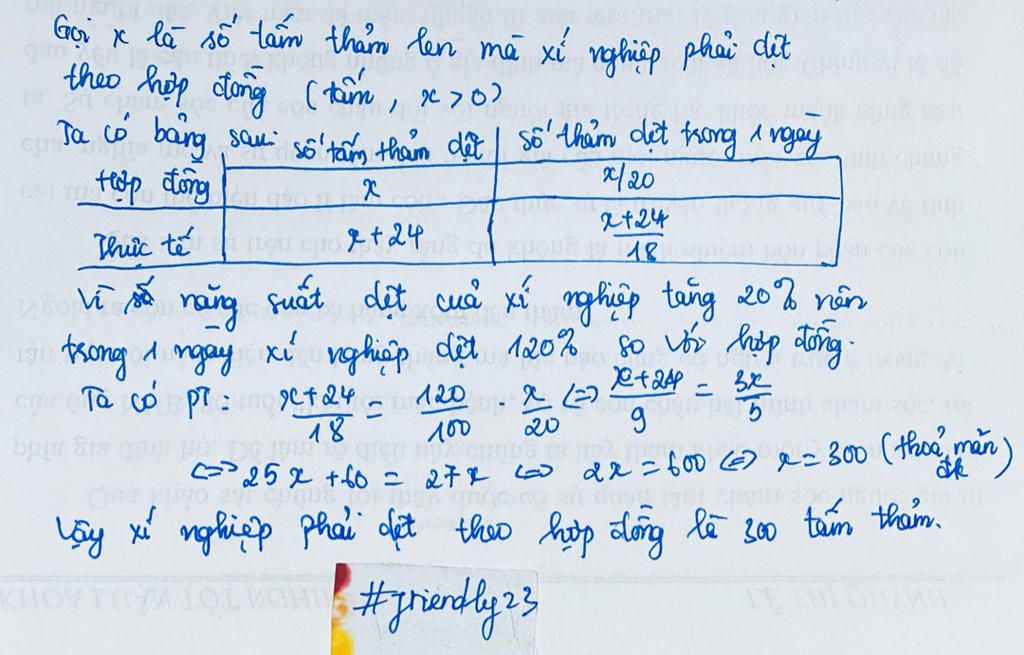 Gọi x là số tấm thảm len mà xí nghiệp phải dệt
theo hợp đồng (tấm, x > 0)
Ta có bảng sau: số tấm thảm dệt số thảm dệt trong 1 ngày
Hợp đồng x x/20
Thực tế x + 24 x+24/18
Vì năng suất dệt của xí nghiệp tăng 20% nên
trong 1 ngày xí nghiệp dệt 120% so với hợp đồng.
Ta có PT: x+24/18 = 120/100 . x/20 <=> x+24/9 = 3x/5
<=> 25x + 60 = 27x <=> 2x = 600 <=> x = 300 (thoả mãn đk)
Vậy xí nghiệp phải dệt theo hợp đồng là 300 tấm thảm.
#friendly23